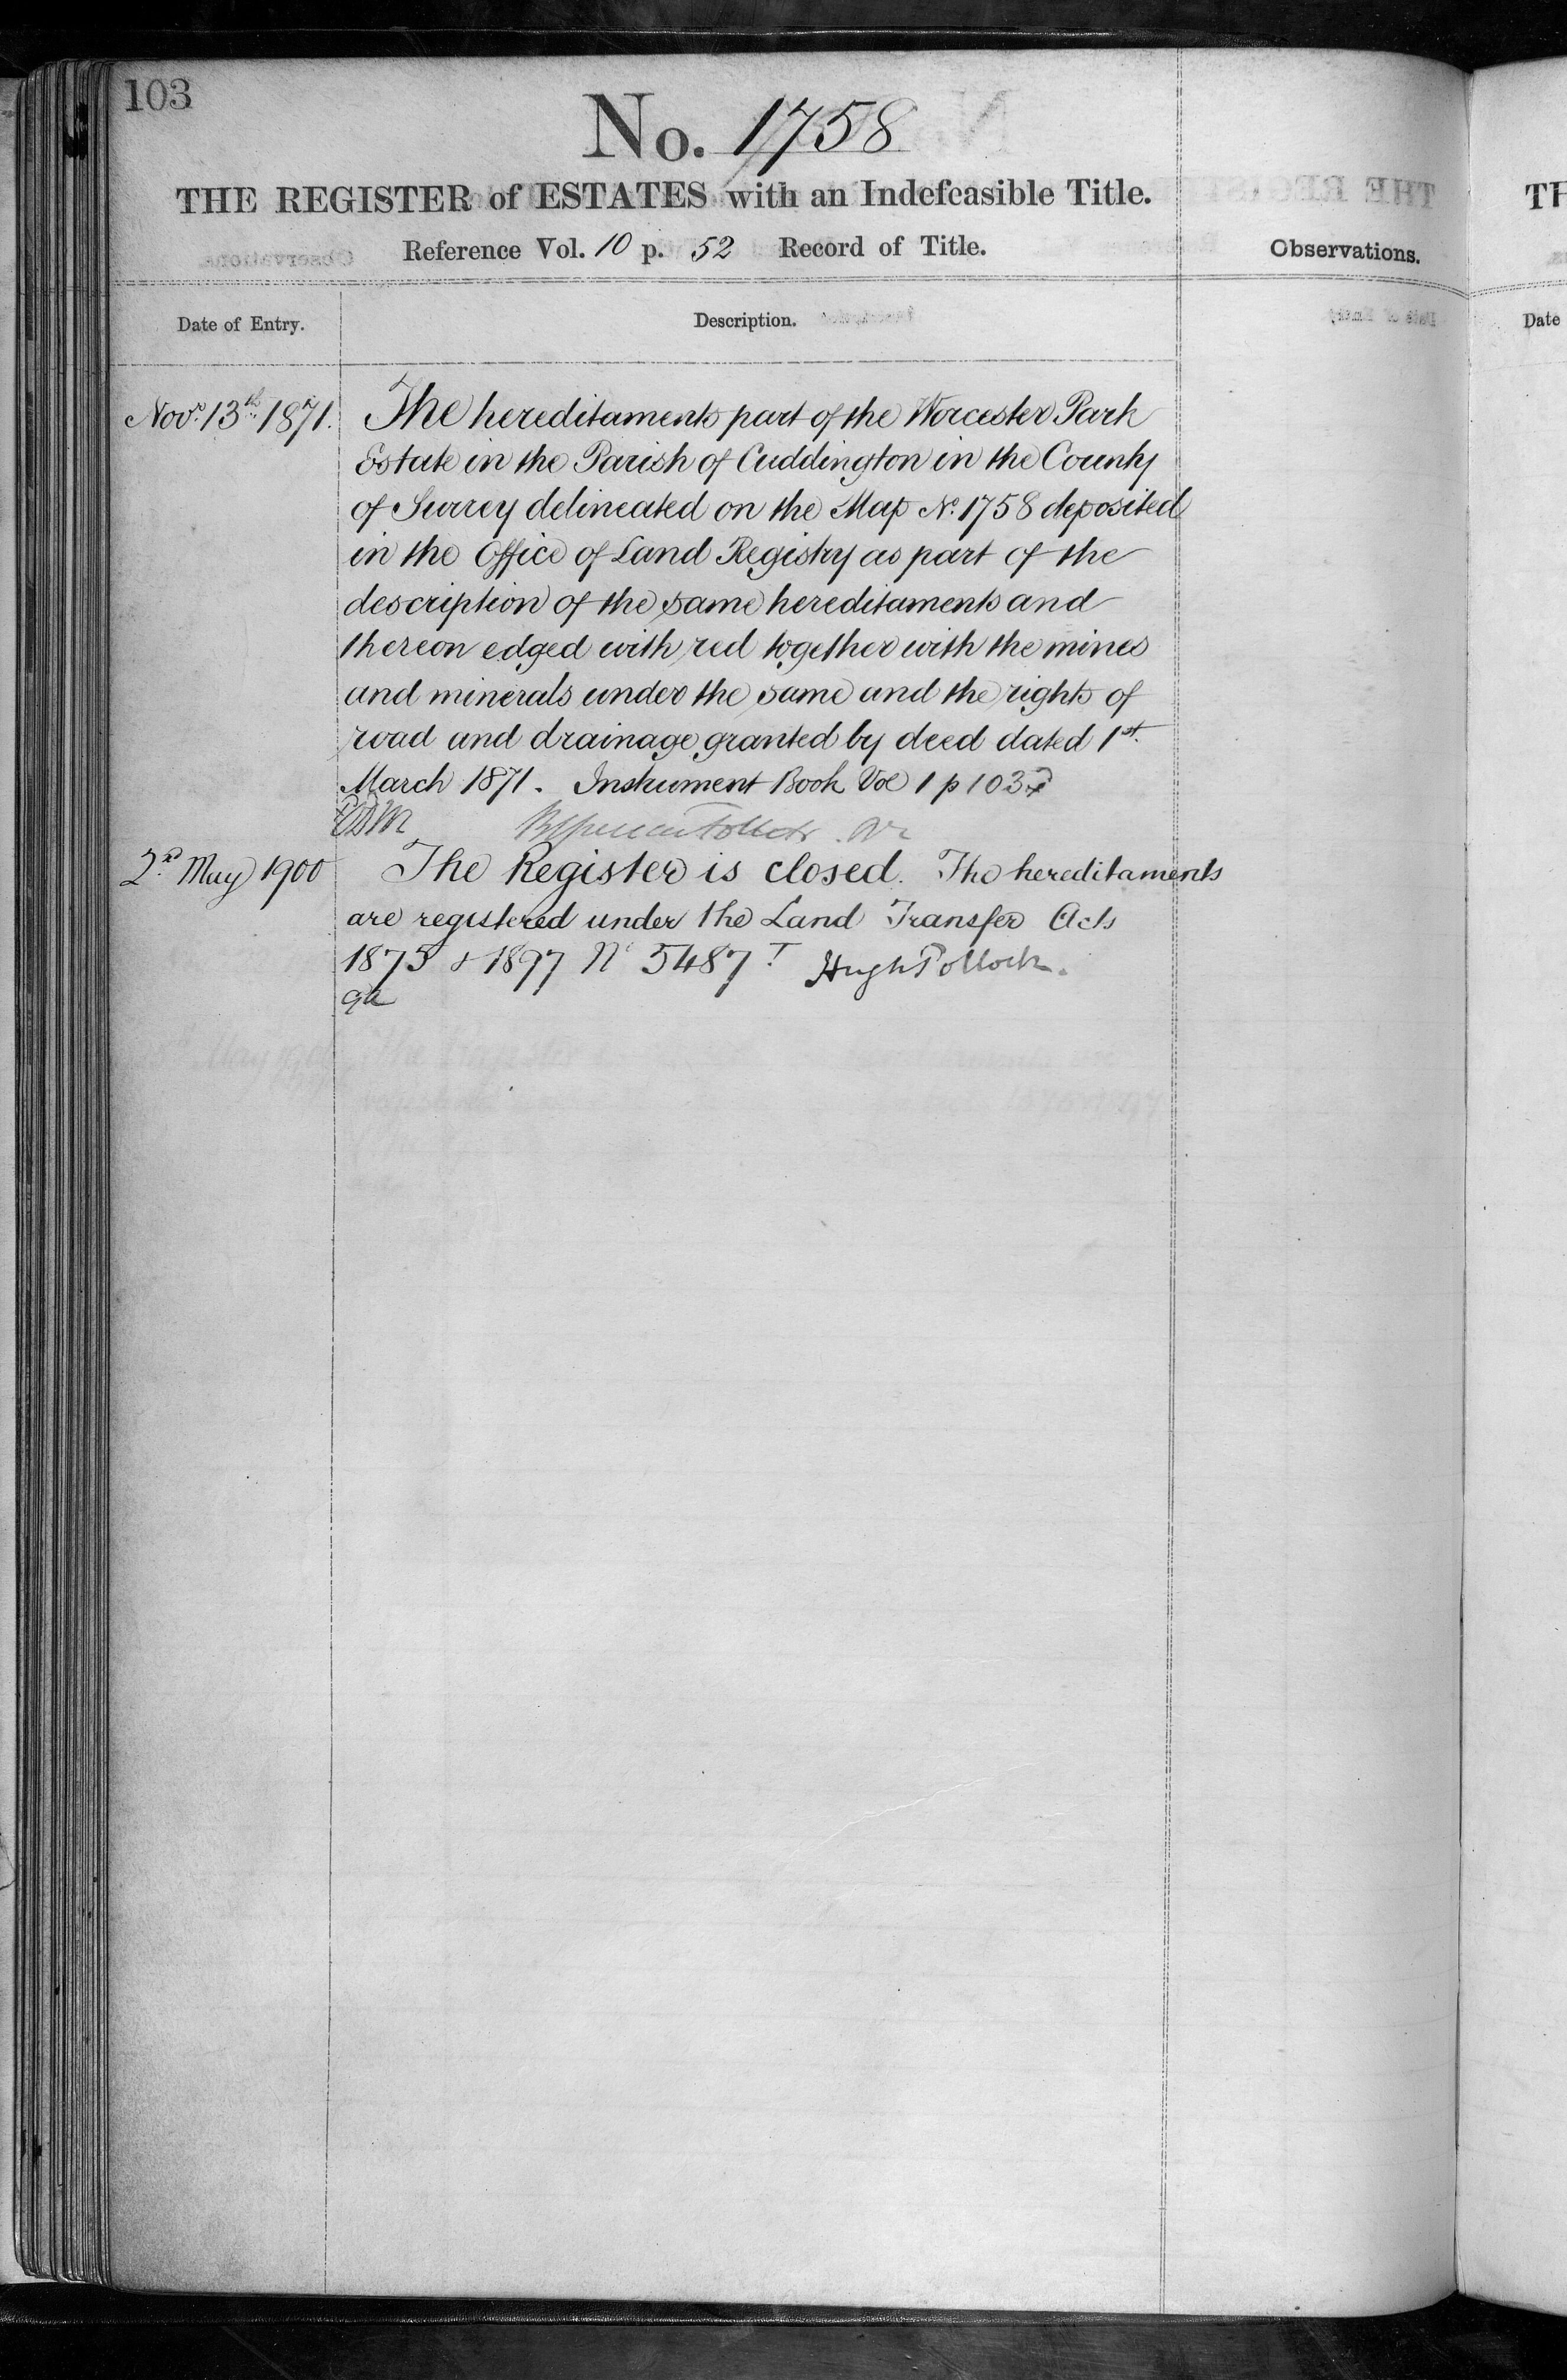 103
No. 1758
THE REGISTER of ESTATES with an Indefeasible Title.
Reference Vol. 10 p. 52 Record of Title.
Observations.
Date of Entry.
Description.
Novr. 13th 1871. The hereditaments part of the Worcester Park
Estate in the Parish of Cuddington in the County
of Surrey delineated on the Map No. 1758 deposited
in the Office of Land Registry as part of the
description of the same hereditaments and
thereon edged with red together with the mines
and minerals under the same and the rights of
road and drainage granted by deed dated 1st.
March 1871. Instrument Book Vol 1 p
2d. May 1900 The Register is closed. The hereditaments
are registered under the Land Transfer Acts
1875 & 1897 No 5487 Hugh Pollock.
TH
Date